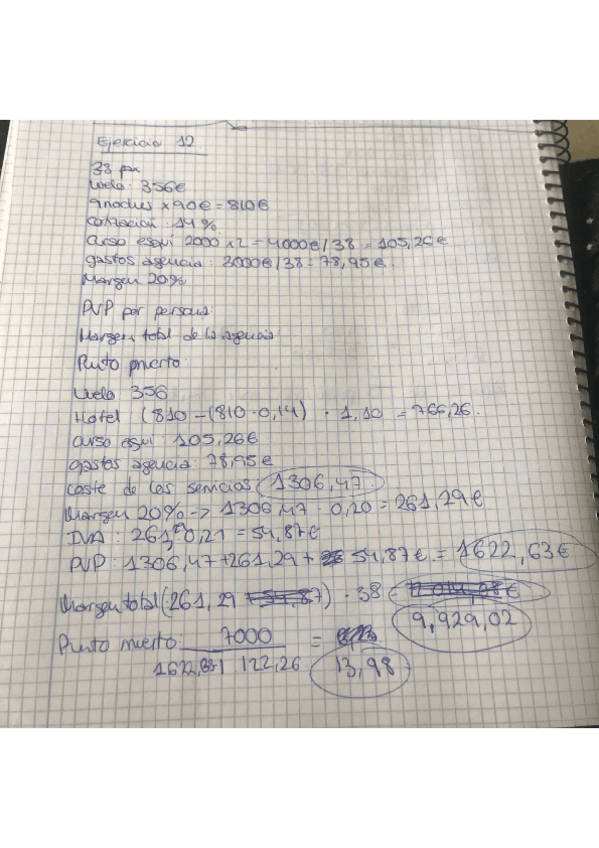 Ejercicio 12
38 pax
Vuelo: 356€
9 noches x 90€ = 810€
: 14%
curso esqui 2000 x 2 = 4000€ / 38 = 105,26€
gastos agencia: 2000€/38 = 78,95€.
Margen 20%
PVP por persona:
Margen total de la agencia:
Punto muerto:
Vuelo 356
Hotel (810 - (810 · 0,14) · 1,10 = 766,26.
curso esqui: 105,26€
gastos agencia: 78,95€
coste de los servicios: 1306,47.
Margen 20% -> 1306,47 · 0,20 = 261,29€
IVA: 261, · 0,21 = 54,87€
PVP: 1306,47 + 261,29 + 54,87€ = 1622,63€
Margen total (261,29 + 54,87) · 38 =
9,929,02
Punto muerto: 7000 = 13,98
1122,26